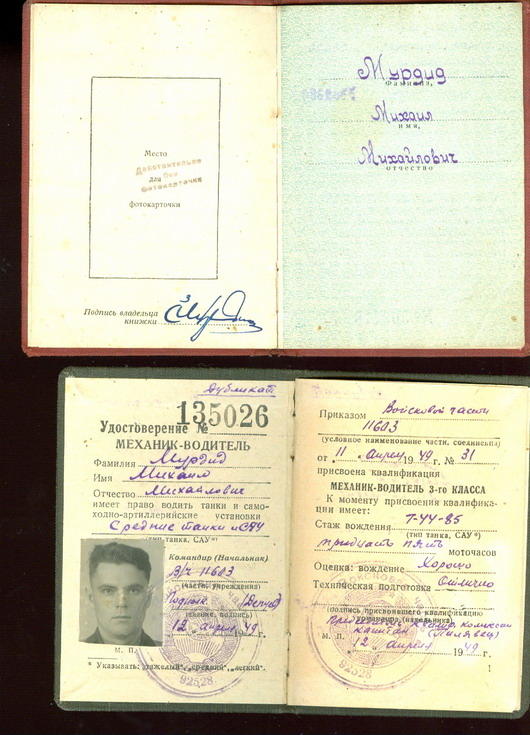 Место
для
фотокарточки
Действительно
без
фотокарточки
Подпись владельца
книжки
Мурдид
Фамилия,
Михаил
имя,
Михайлович
отчество
Дубликат
135026
Удостоверение №
МЕХАНИК-ВОДИТЕЛЬ
Фамилия Мурдид
Имя Михаил
Отчество Михайлович
имеет право водить танки и само-
ходно-артиллерийские установки
Средние танки и САУ
(тип танка, САУ*)
Командир (Начальник)
В/ч 11603
(части, учреждения)
Подполк.
(звание, подпись)
12 апреля 1949 г.
М. П.
* Указывать: „тяжелый", „средний", „легкий".
92528
Приказом Войсковой части
11603
(условное наименование части, соединения)
от 11 апреля 1949 г. № 31
присвоена квалификация
МЕХАНИК-ВОДИТЕЛЬ 3-го КЛАССА
К моменту присвоения квалифика-
ции имеет:
Стаж вождения Т-44-85
(тип танка, САУ*)
тридцать пять моточасов
Оценка: вождение Хорошо
Техническая подготовка Отлично
(подпись присвоившего квалификацию)
командира (начальника)
комиссии
капитан
М. П. 12 апреля 1949 г.
92528